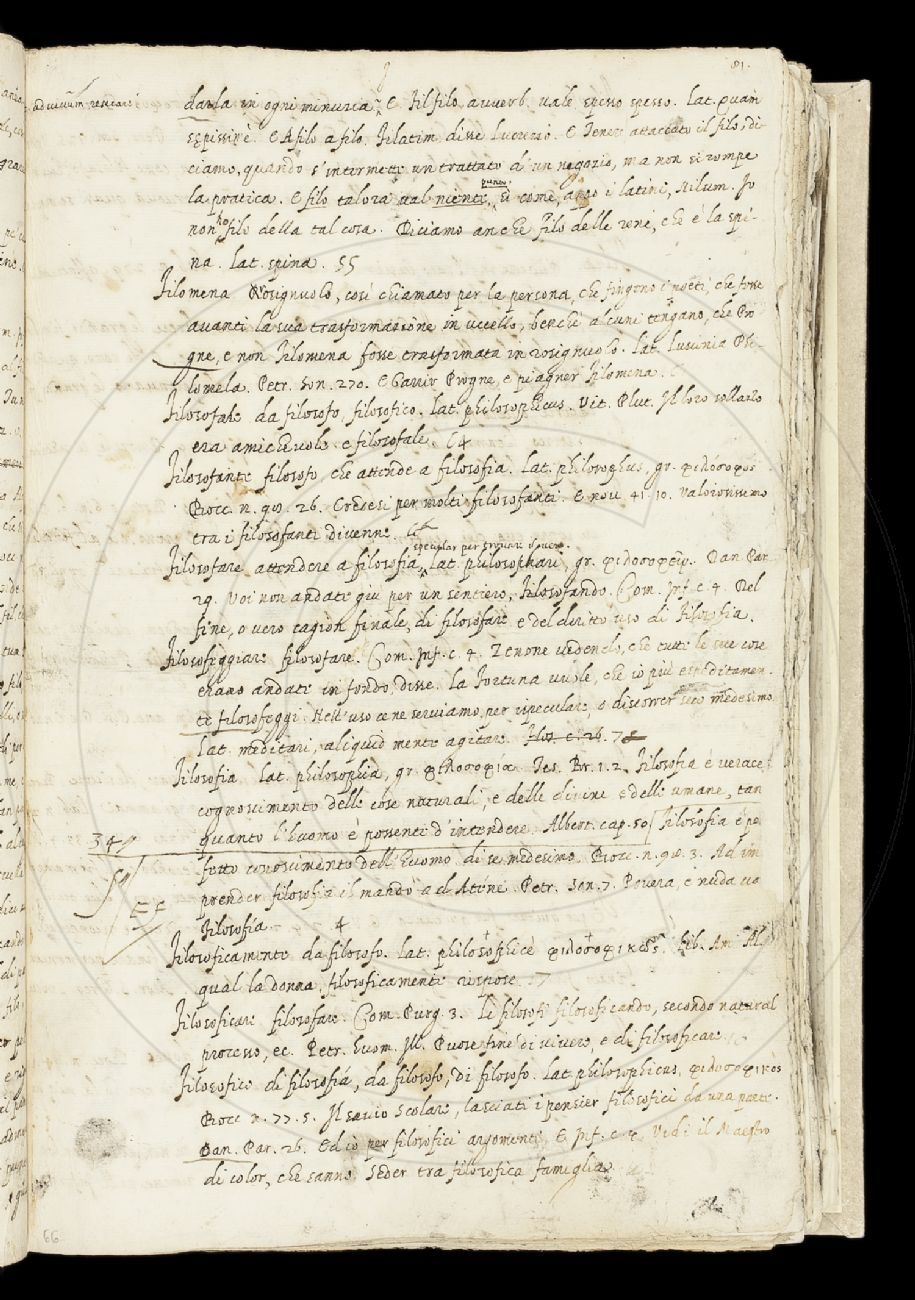 81.
ad vivum resecari
darla in ogni minuzia. E Filfilo avverb. vale spesso spesso. Lat. quam
sepissime. E Afilo afilo. Filatim disse Lucrezio. E Tener attaccato il filo, di-
ciamo, quando s'intermette un trattato d'un negozio, ma non si rompe
punto.
la pratica. E filo talora val niente, si come, anco i latini, Nilum. Io
non ho filo della tal cosa. Diciamo anche Filo delle rene, che è la spi-
na. Lat. spina. 55
Filomena Rosignuolo, così chiamato per la persona, che fingono i poeti, che fosse
avanti la sua trasformazione in uccello, benchè alcuni tengano, che Pro
gne, e non Filomena fosse trasformata in rosignuolo. Lat. Lusinia Phi-
lomela. Petr. Son. 270. E Garrir Progne, e piagner Filomena.
Filosofale da filosofo, filosofico. Lat. philosophicus. Vit. Plut. Il loro sollazzo
era amichevole e filosofale. 64
Filosofante filosofo, che attende a filosofia. Lat. philosophus, gr. φιλόσοφος
Bocc. n. 98. 26. Credesi per molti filosofanti. E nov. 41. 10. valorosissimo
tra i filosofanti divenne.
specular per trovari il vero.
Filosofare attendere a filosofia, Lat. philosophari, gr. φιλοσοφεῖν. Dan Par
29. Voi non andate giu per un sentiero, Filosofando. Com. Inf. c. 4. Nel
fine, o vero cagion finale, di filosofare e del diritto uso di Filosofia.
Filosofeggiare filosofare. Com. Inf. c. 4. Zenone vedendo, che tutte le sue cose
erano andate in fondo, disse. La Fortuna vuole, che io più espeditamen-
te filosofeggi. Nell' uso ce ne serviamo, per ispeculare, o discorrer seco medesimo
Lat. meditari, aliquid mente agitare.
Filosofia Lat. philosophia, gr. φιλοσοφια. Tes. Br. 1. 2. Filosofia è verace
cognoscimento delle cose naturali, e delle divine e delle umane, tan
quanto l'huomo è possente d'intendere. Albert. cap. 50 Filosofia è pe
34
fetto conoscimento dell'huomo di se medesimo. Bocc. n. 98. 3. Ad im
prender filosofia il mandò ad Atene. Petr. Son. 7. Povera, e nuda va
Filosofia. 4
Filosoficamente da filosofo. Lat. philosophicè φιλοσοφικῶς. Fil.
qual la donna filosoficamente rispose.
Filosoficare filosofare. Com. Purg. 3. Li filosofi filosoficando, secondo natural
processo, ec. Petr. huom. Ill. Puose fine di vivere, e di filosoficare.
Filosofico di filosofia, da filosofo, di filosofo. Lat. philosophicus, φιλοσοφικος
Bocc. n. 77. 5. Il savio scolare, lasciati i pensier filosofici da una parte.
Dan. Par. 26. Ed io per filosofici argomenti, E Inf. c. 4. Vidi il Maestro
di color, che sanno Seder tra filosofica famiglia
66